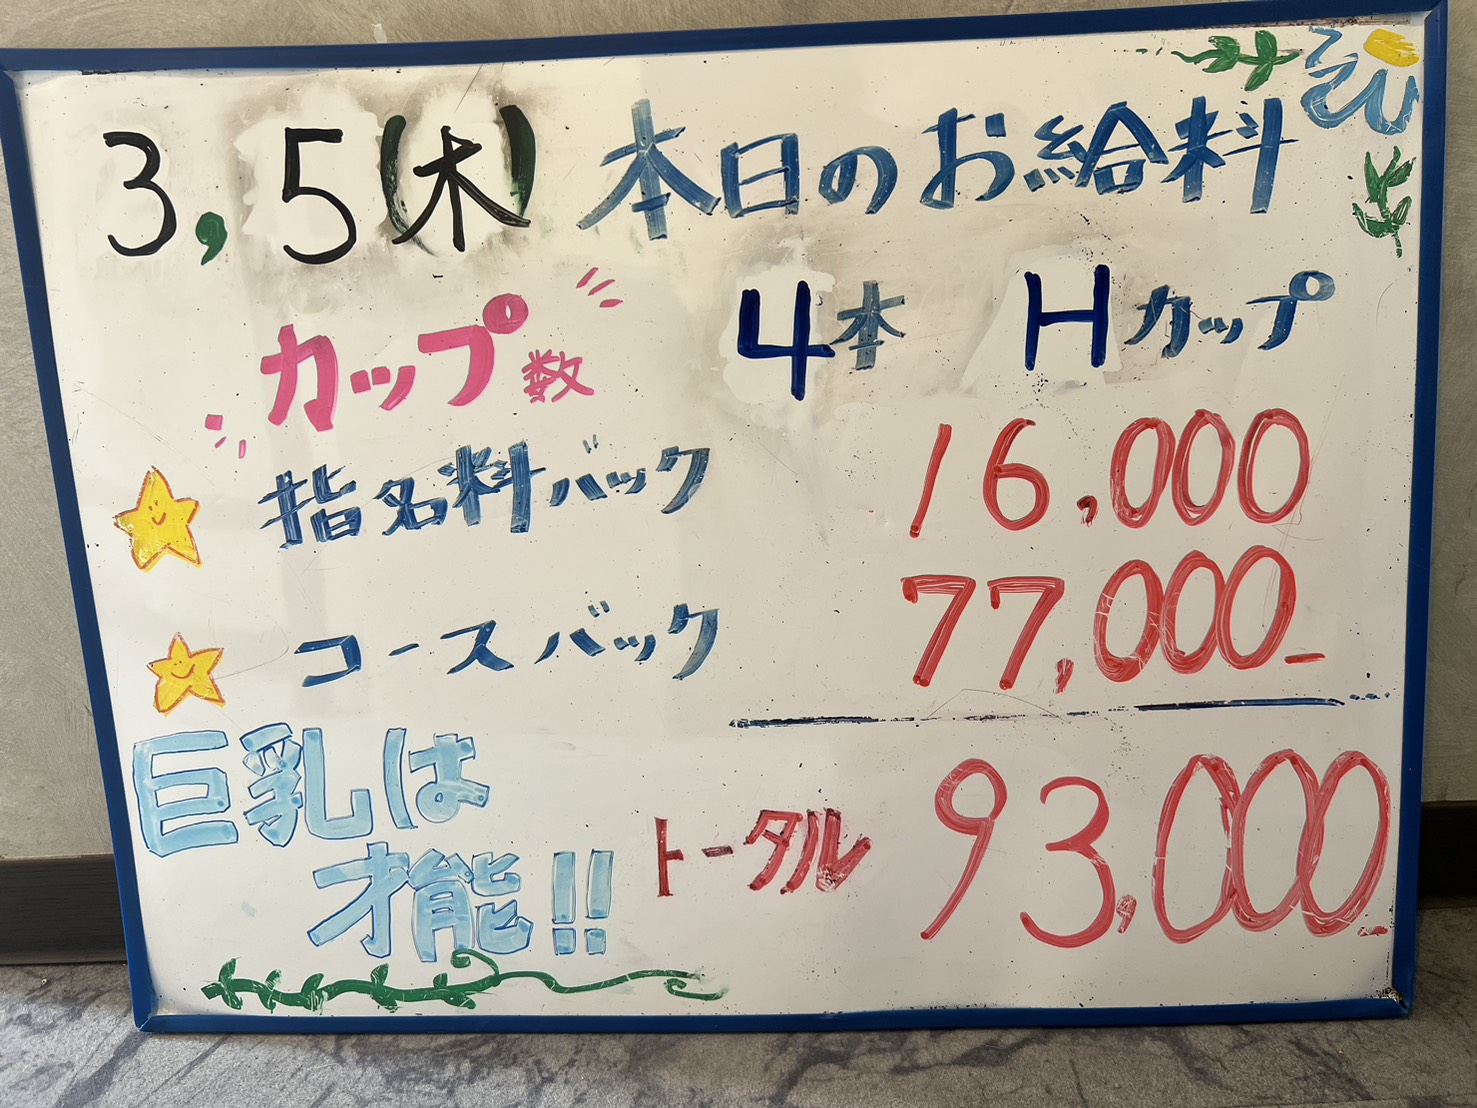 3,5(木) 本日のお給料
カップ数 4本 Hカップ
指名料バック 16,000
コースバック 77,000-
巨乳は
才能!!
トータル 93,000-